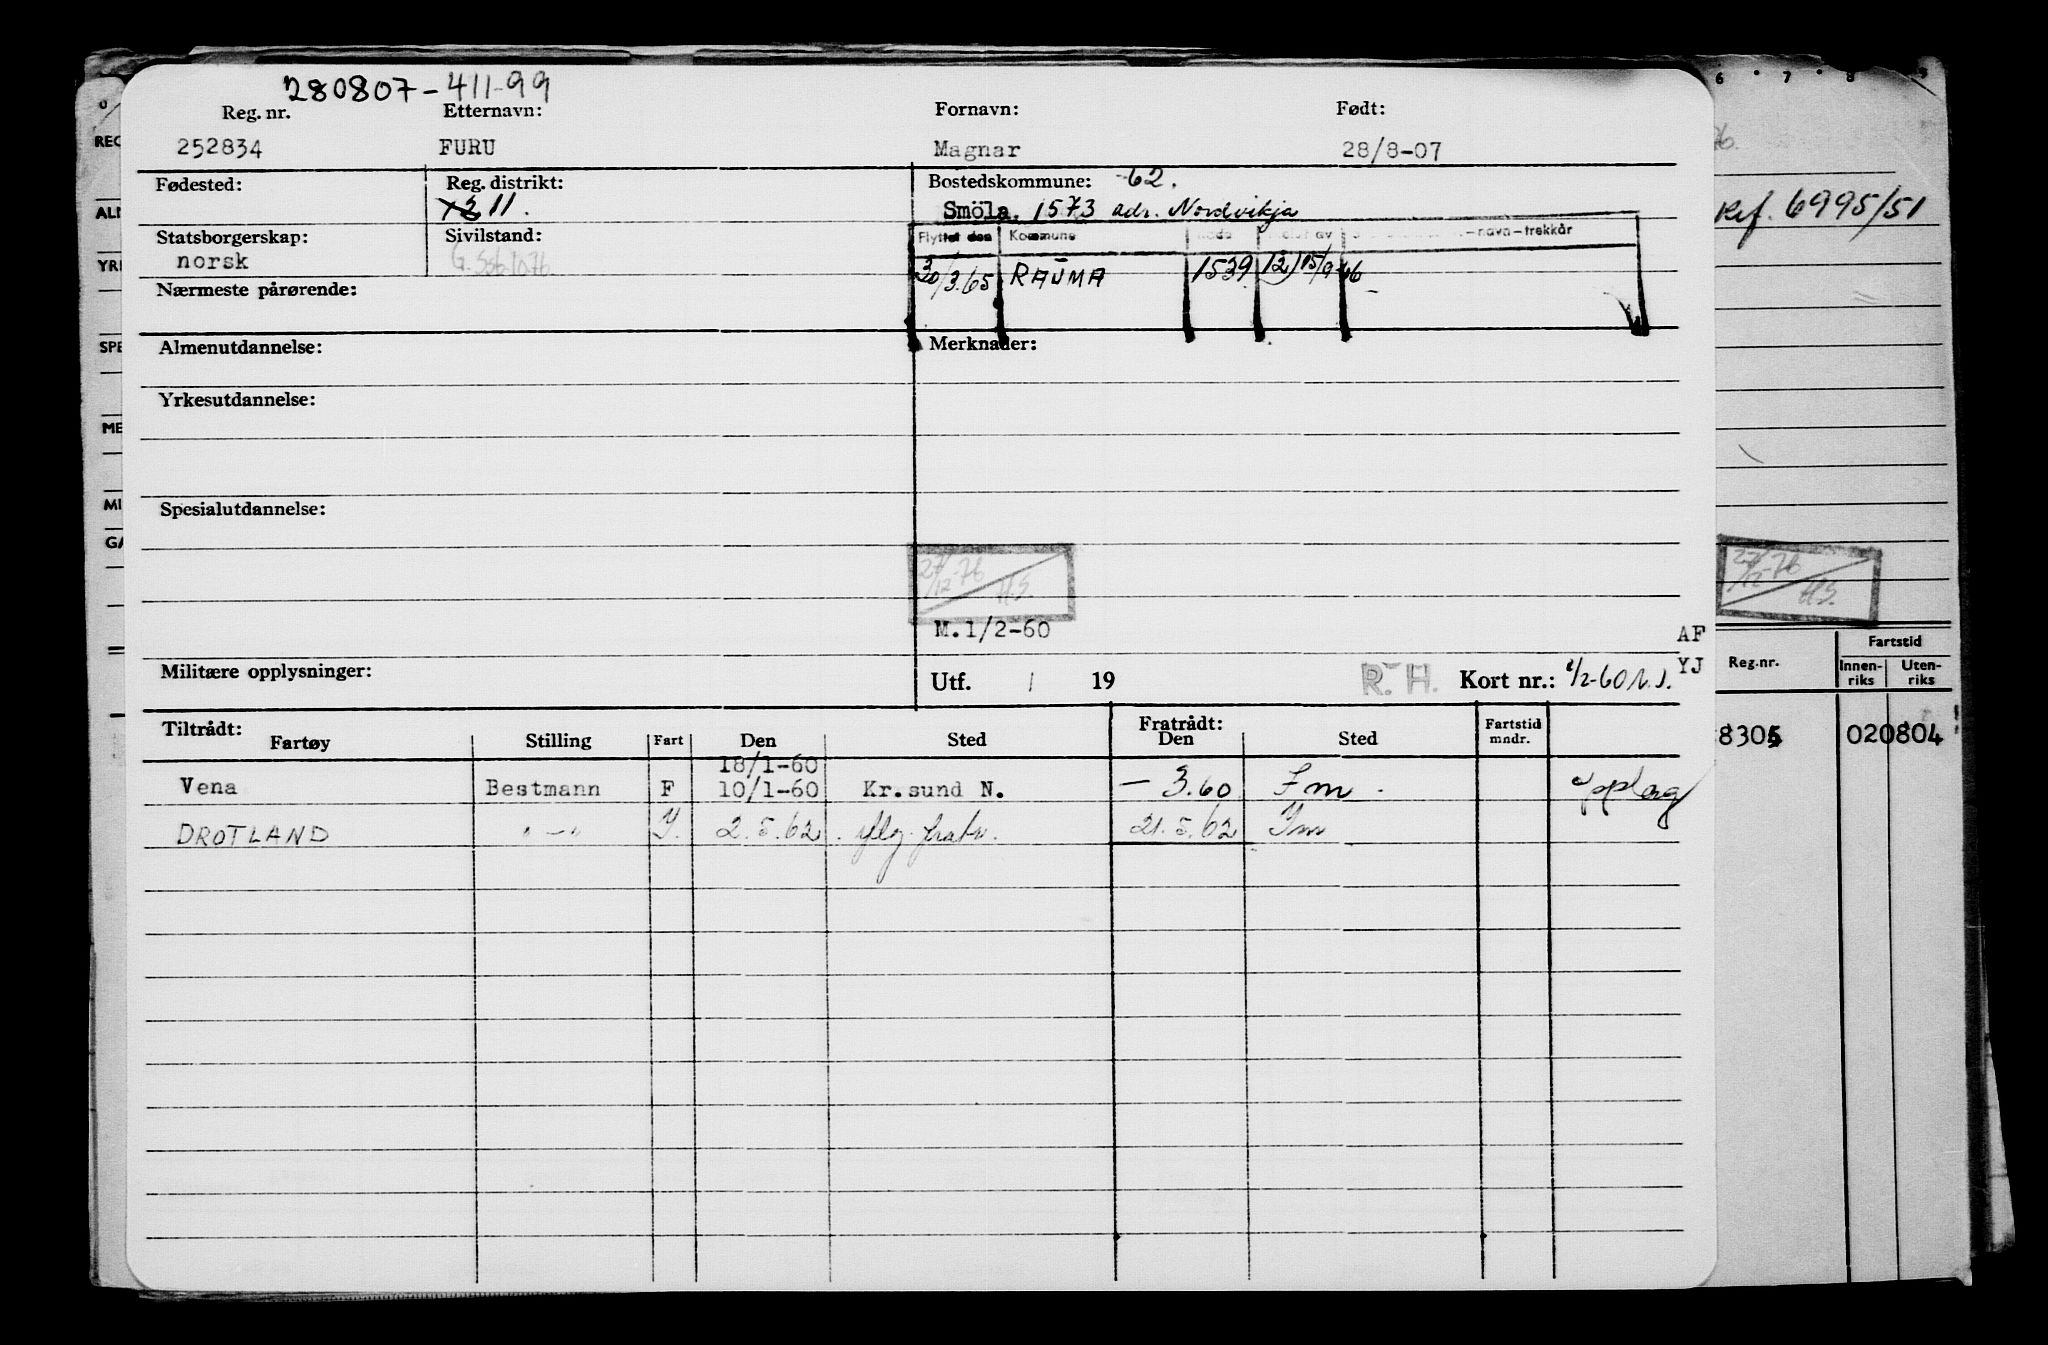 280807-411-99
Reg. nr. Etternavn: Fornavn: Født:
252834 FURU Magnar 28/8-07
Fødested: Reg. distrikt: Bostedskommune: -62.
11. Smöla. 1573 adr. Nordvikja
Statsborgerskap: Sivilstand: Flyttet den Kommune -navn-trekkår
norsk
30/3.65 RAUMA 1539 12) 15/9-66
Nærmeste pårørende:
Almenutdannelse: Merknader:
Yrkesutdannelse:
Spesialutdannelse:
27/12-76 H.S.
M.1/2-60
AF
Militære opplysninger: Utf. / 19 R.H. Kort nr.: 1/2-60 YJ
Tiltrådt: Fratrådt:
Fartøy Stilling Fart Den Sted Den Sted Fartstid mndr.
18/1-60
Vena Bestmann F 10/1-60 Kr.sund N. - 3.60 Fm. opplag
DROTLAND " - " 2.5.62 21.5.62
REG
ALM
YRK
SPE
ME
MI
GA
6 7 8 9
Ref. 6995/51
27/12-76 H.S.
Reg.nr. Fartstid
Innen-riks Uten-riks
8305 020804